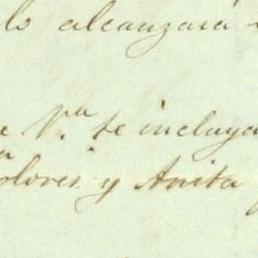 ls alcanzará
e V.ª te incluya
olores y Anita